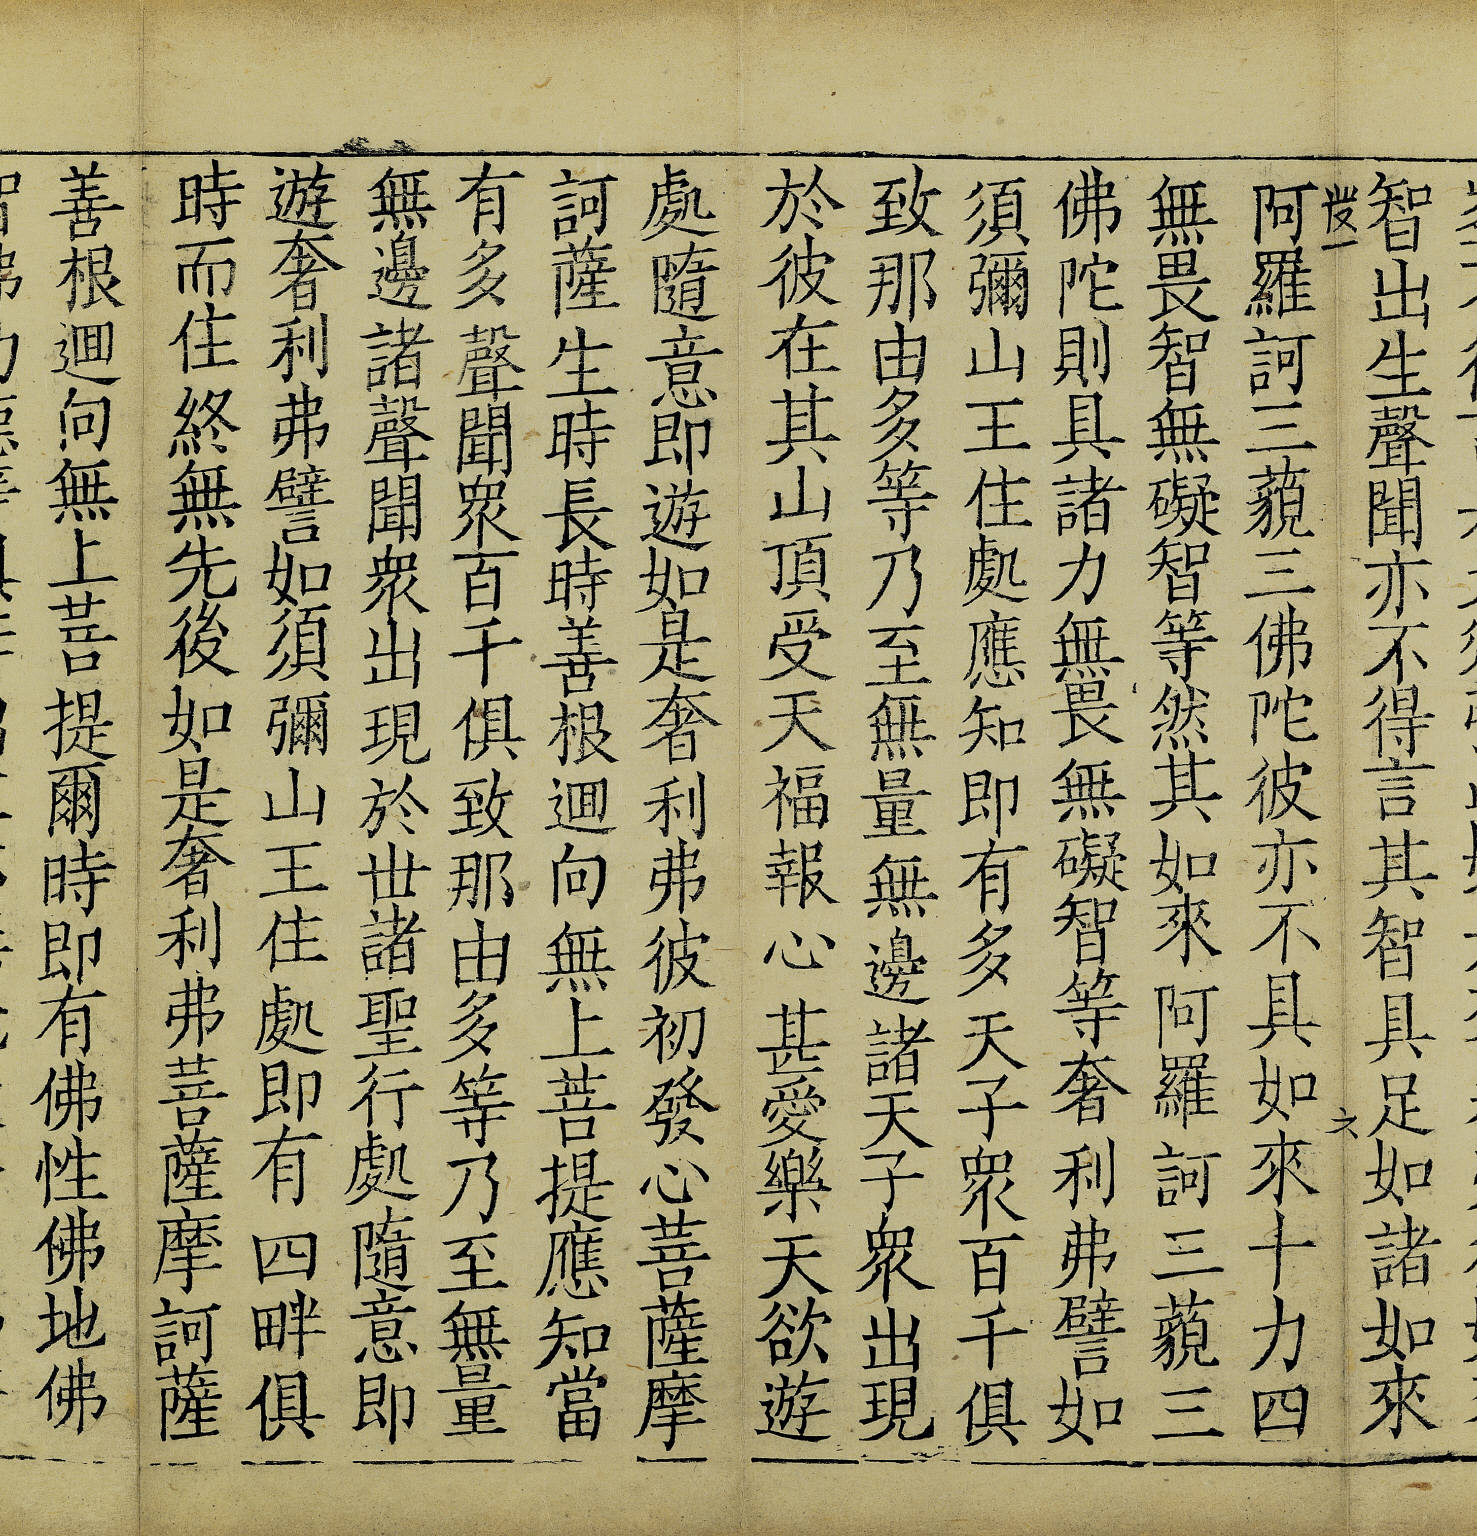 智出生聲聞亦不得言其智具足如諸如來
六
阿羅訶三藐三佛陀彼亦不具如來十力四
無畏智無礙智等然其如來阿羅訶三藐三
佛陀則具諸力無畏無礙智等奢利弗譬如
須彌山王住處應知即有多天子衆百千俱
致那由多等乃至無量無邊諸天子衆出現
於彼在其山頂受天福報心甚愛樂天欲遊
處隨意即遊如是奢利弗彼初發心菩薩摩
訶薩生時長時善根迴向無上菩提應知當
有多聲聞衆百千俱致那由多等乃至無量
無邊諸聲聞衆出現於世諸聖行處隨意即
遊奢利弗譬如須彌山王住處即有四畔俱
時而住終無先後如是奢利弗菩薩摩訶薩
善根迴向無上菩提爾時即有佛性佛地佛